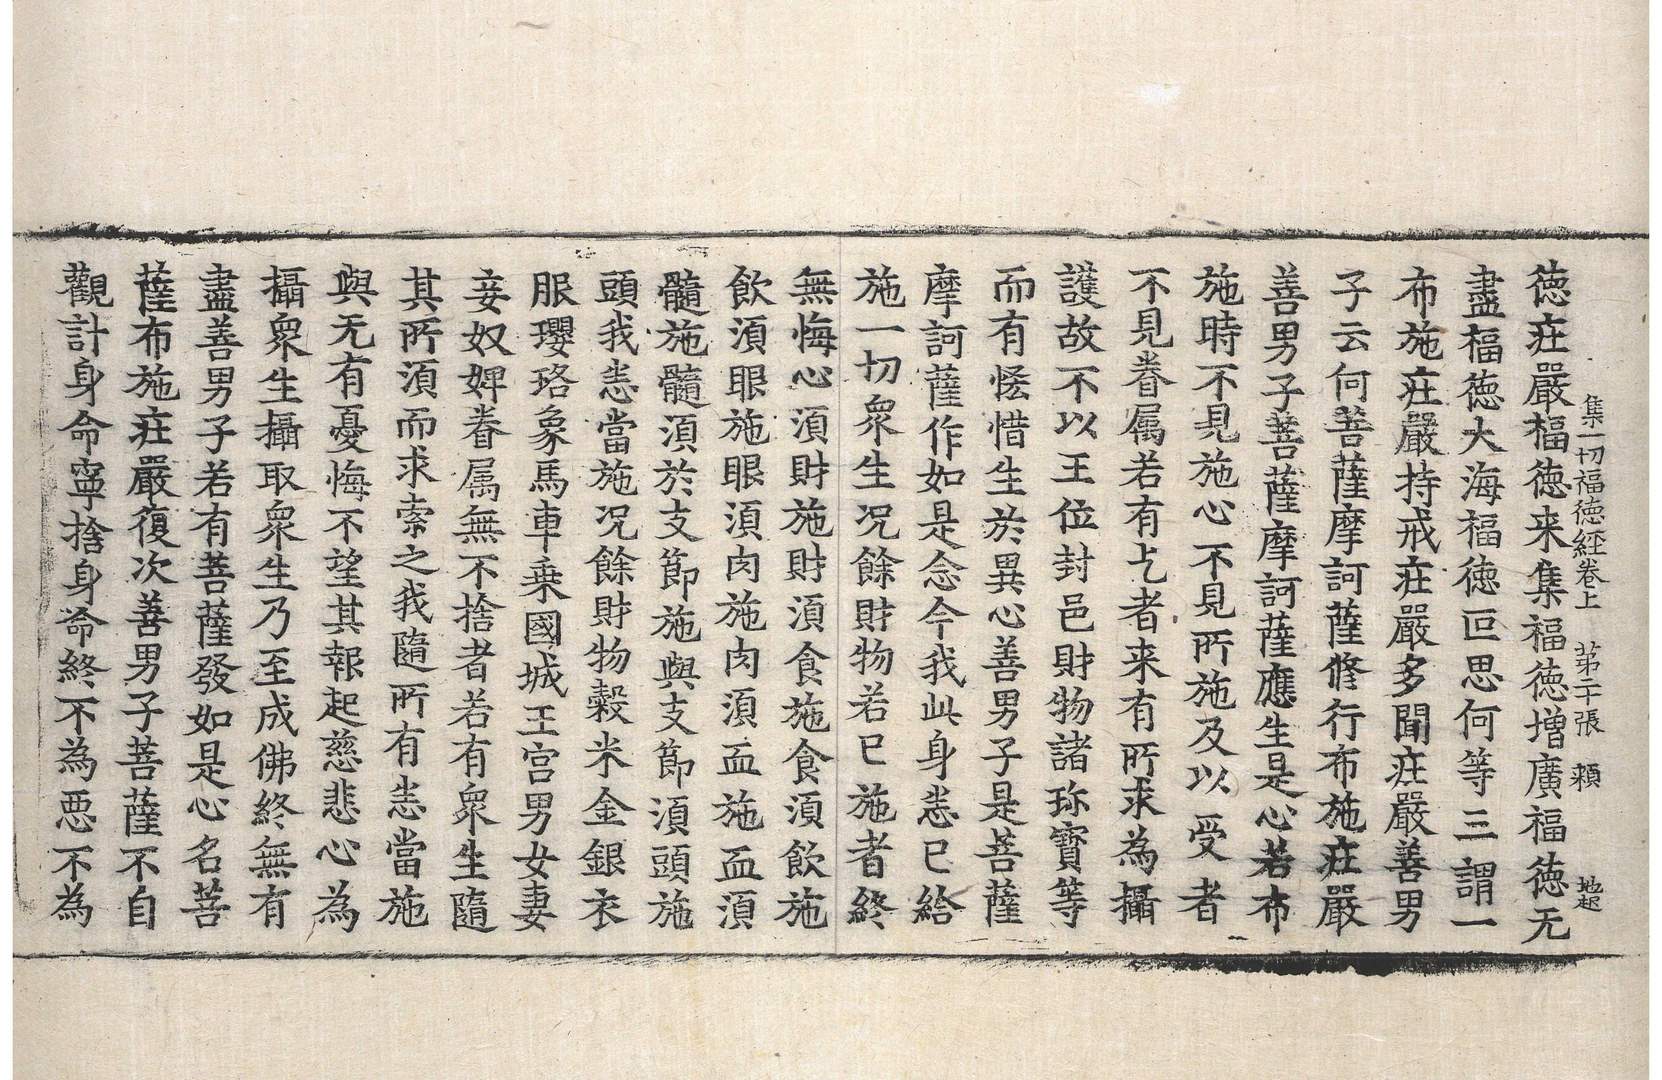 集一切福徳経卷上　第二十張　頼
徳疰嚴福徳来集福徳増廣福徳无
盡福徳大海福徳叵思何等三謂一
布施疰嚴持戒疰嚴多聞疰嚴善男
子云何菩薩摩訶薩修行布施疰嚴
善男子菩薩摩訶薩應生是心若布
施時不見施心不見所施及以受者
不見眷属若有乞者来有所求為攝
護故不以王位封邑財物諸珎寳等
而有悋惜生於異心善男子是菩薩
摩訶薩作如是念今我此身悉已給
施一切衆生况餘財物若已施者終
無悔心湏財施財湏食施食湏飲施
飲湏眼施眼湏肉施肉湏血施血湏
髓施髓湏於支節施與支節湏頭施
頭我悉當施况餘財物穀米金銀衣
服瓔珞象馬車乗國城王宫男女妻
妾奴婢眷属無不捨者若有衆生隨
其所湏而求索之我隨所有悉當施
與无有憂悔不望其報起慈悲心為
攝衆生攝取衆生乃至成佛終無有
盡善男子若有菩薩發如是心名菩
薩布施疰嚴復次善男子菩薩不自
觀計身命寧捨身命終不為惡不為